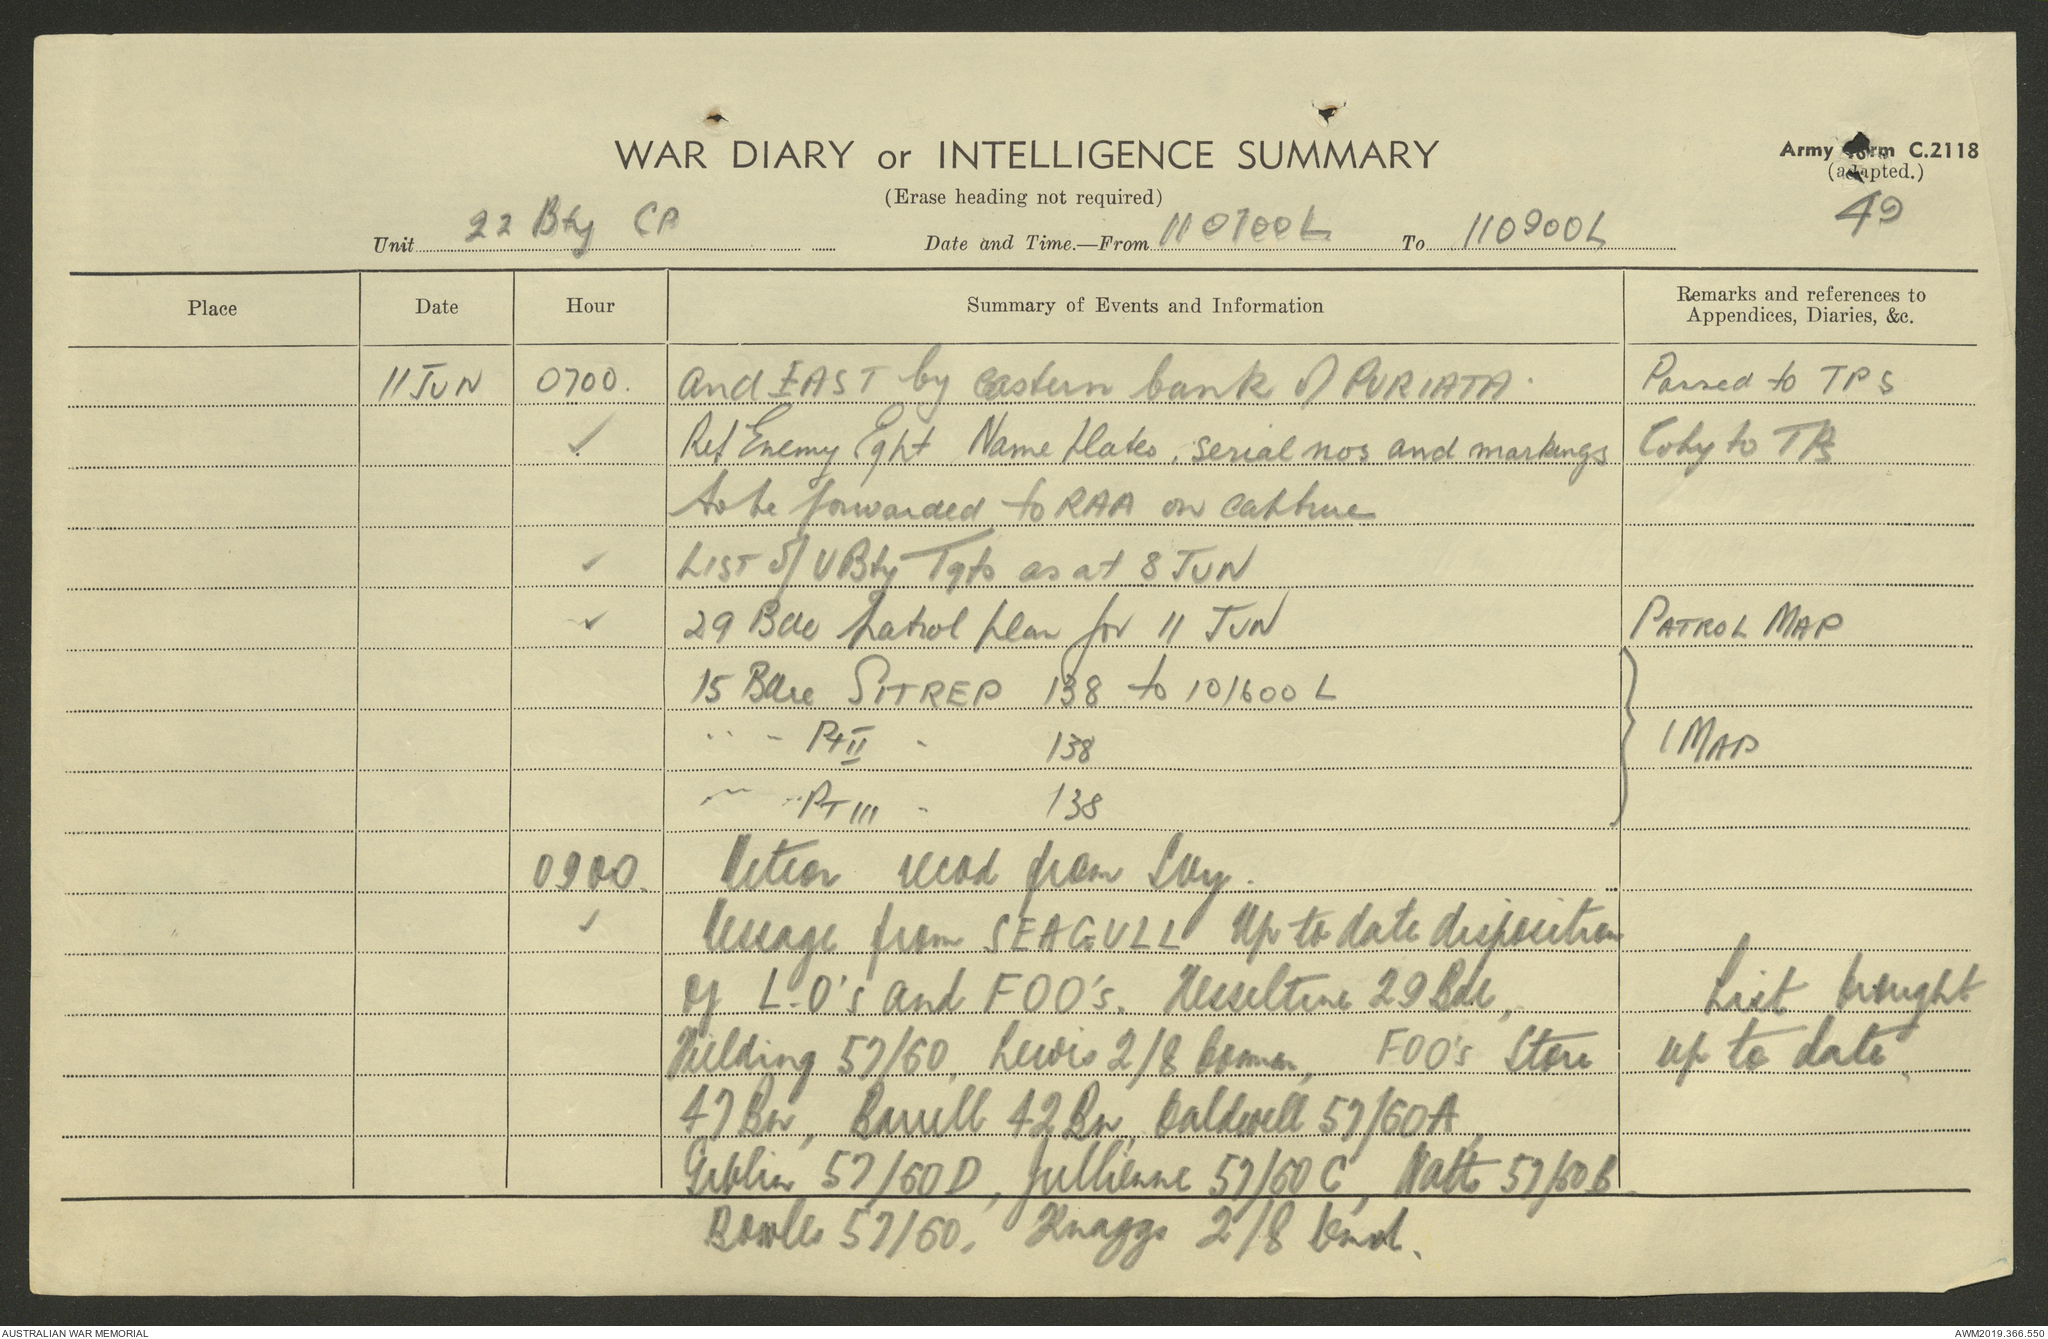 WAR DIARY or INTELLIGENCE SUMMARY
Army Form C.2118
(adapted.)
(Erase heading not required)
49
Unit 22 Bty CP Date and Time.—From 110700L To 110900L
Place Date Hour Summary of Events and Information Remarks and references to Appendices, Diaries, &c.
11 JUN 0700. and EAST by eastern bank of PURIATA. Passed to TPS
✓ Ref Enemy Eqpt Name plates, serial nos and markings Copy to TPS
to be forwarded to RAA on capture
✓ LIST of U Bty Tgts as at 8 JUN
✓ 29 Bde patrol plan for 11 JUN PATROL MAP
15 Bde SITREP 138 to 101600 L
" " Pt II " 138 1 MAP
" " PT III " 138
0900. Meteor recd from Svy.
✓ Message from SEAGULL Up to date disposition
of L.O's and FOO's. Hesseltine 29 Bde, List brought
Fielding 57/60, Lewis 2/8 Comman, FOO's Stone up to date
47 Bn, Barrell 42 Bn, Caldwell 57/60 A,
Giblin 57/60 D, Jullienne 57/60 C, Watts 57/60 B
Bowles 57/60, Knaggs 2/8 Cmd.
AUSTRALIAN WAR MEMORIAL
AWM2019.366.550